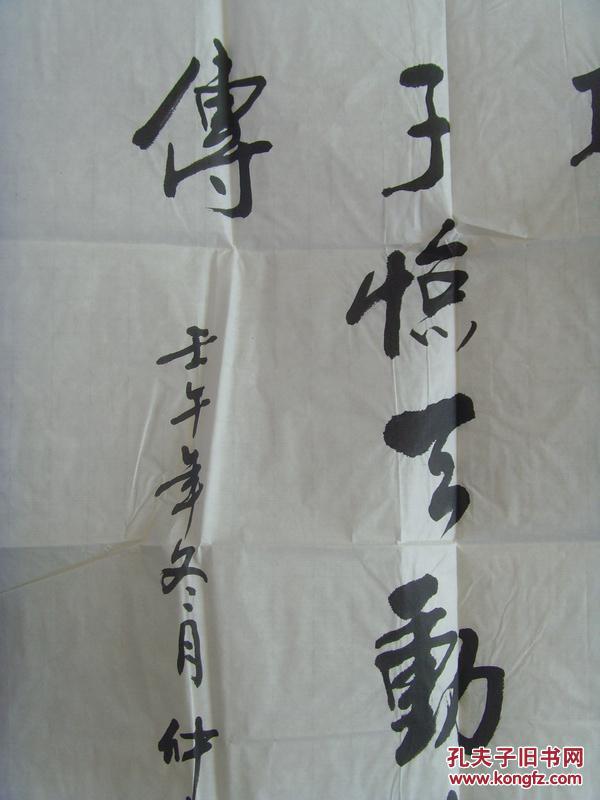 子
天動
傳
壬午年冬月仲
孔夫子旧书网
www.kongfz.com